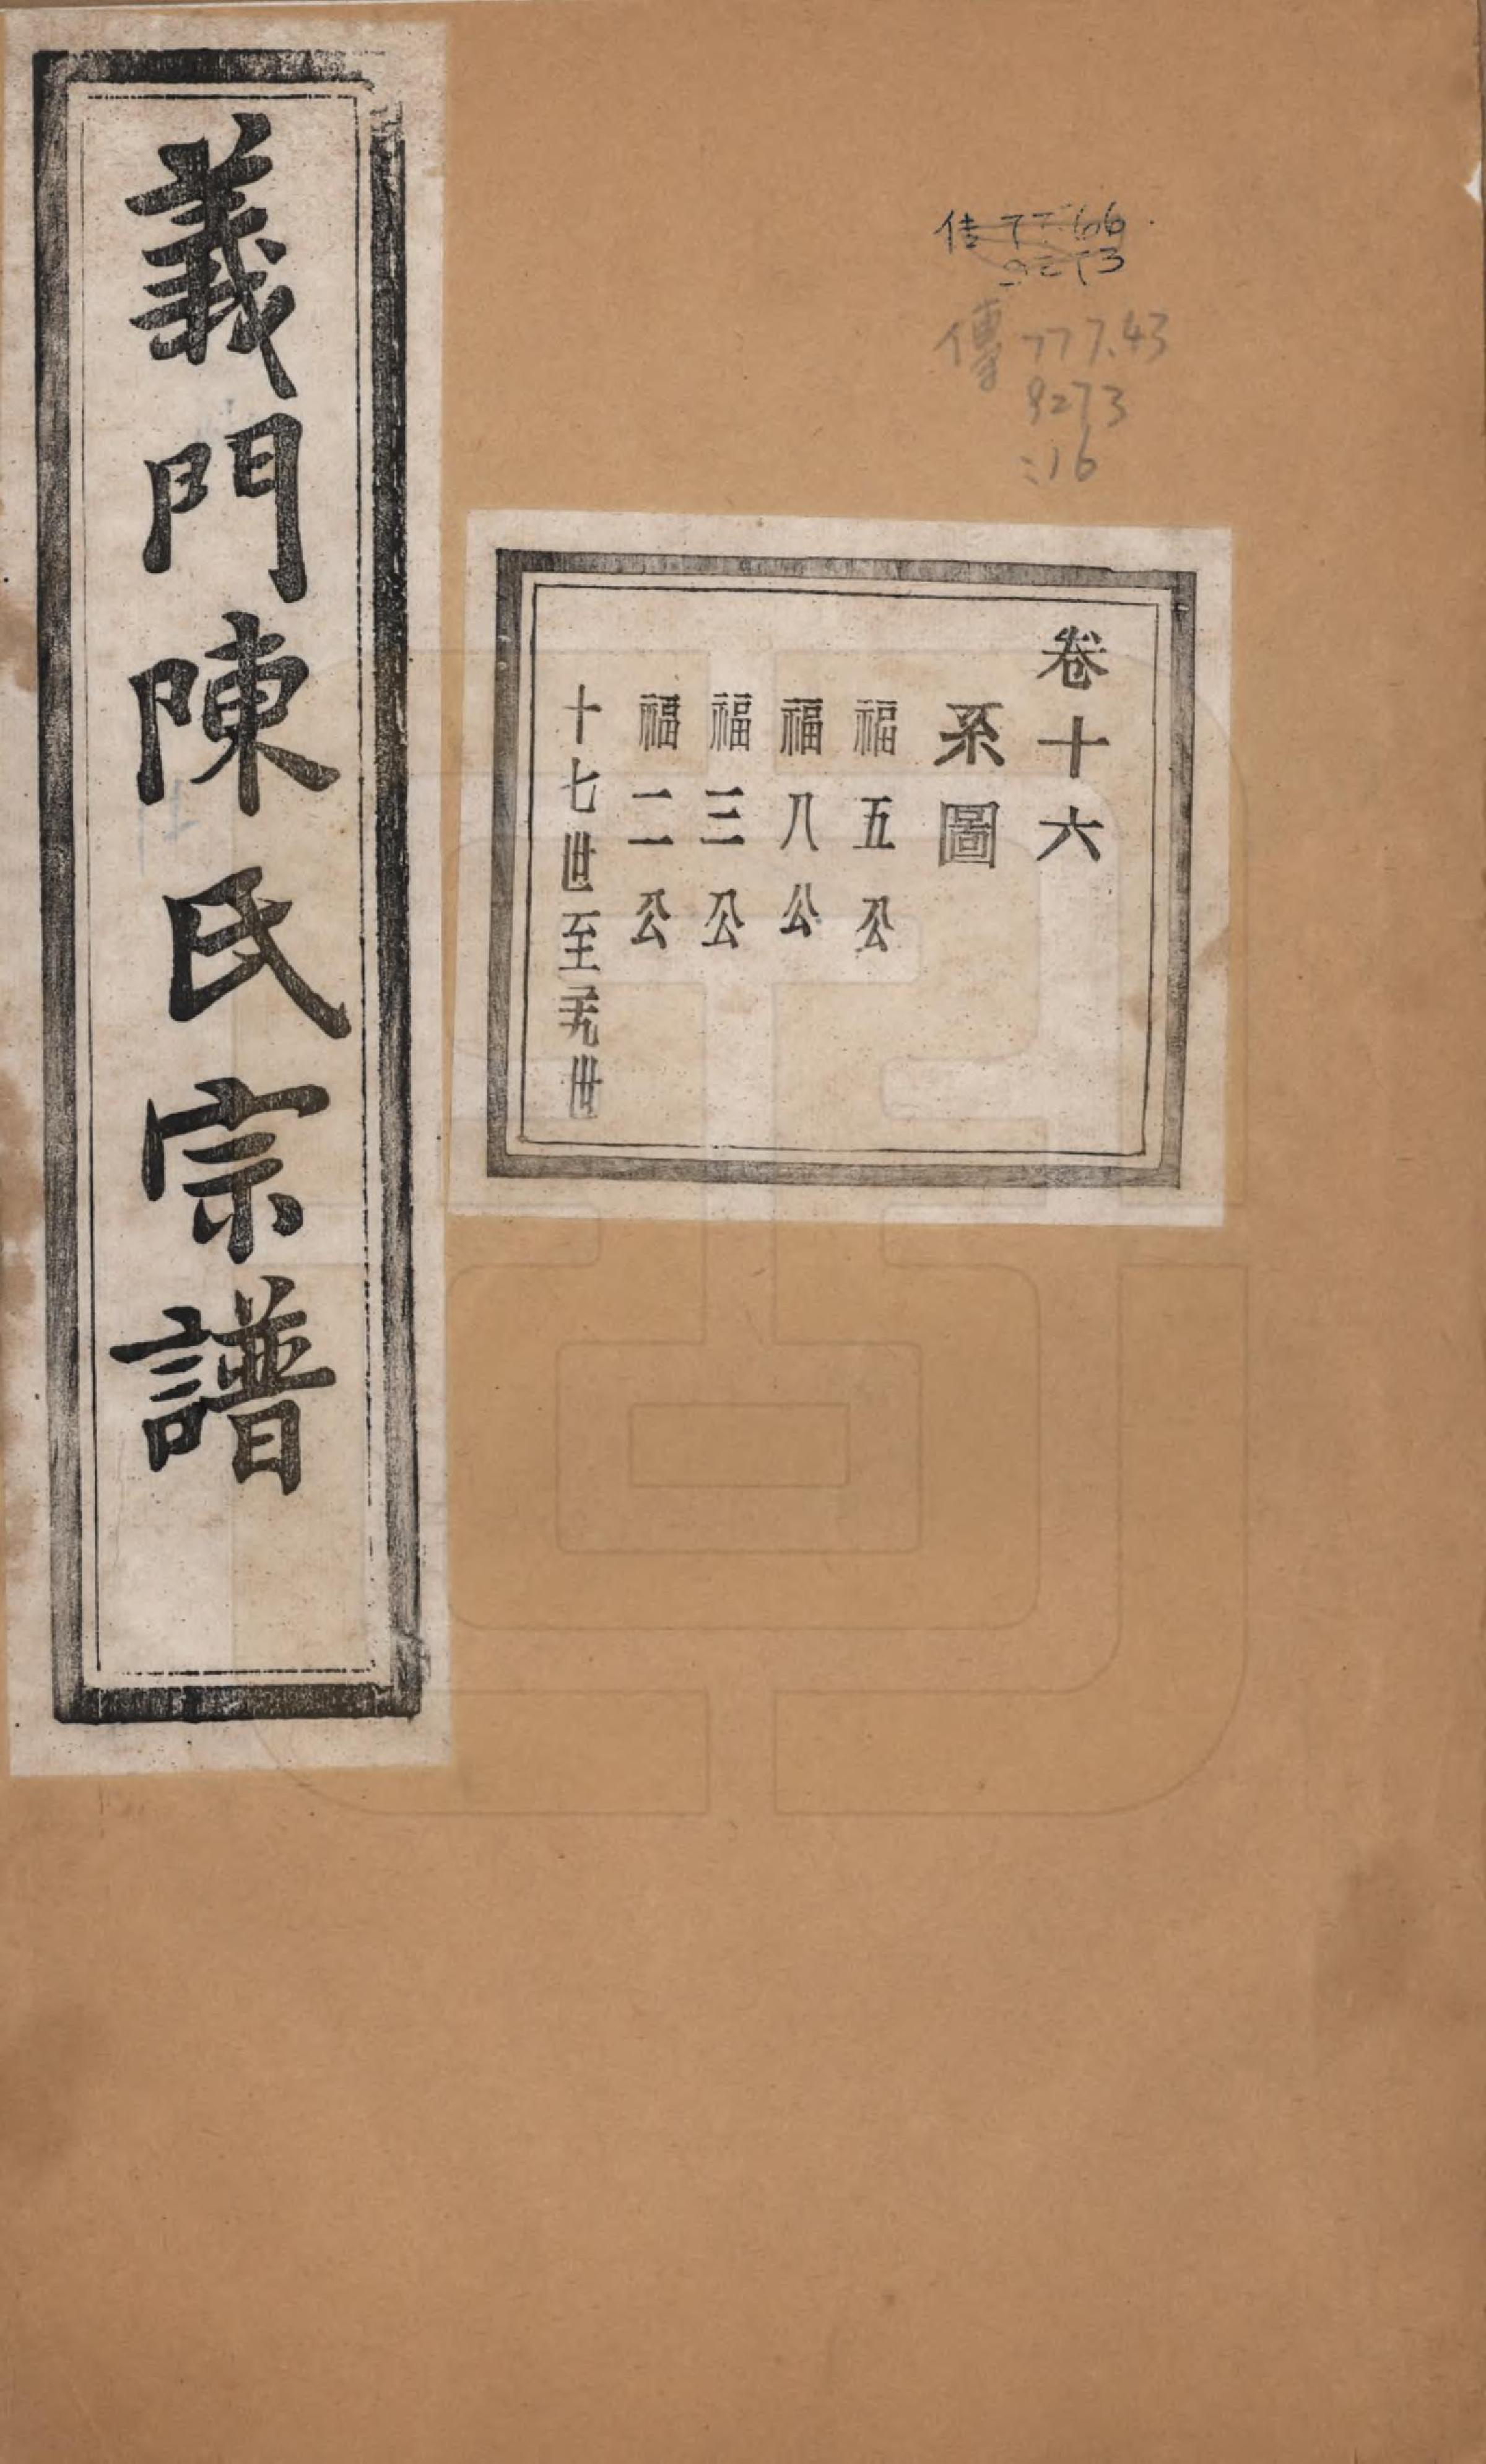 義門陳氏宗譜
傳 777.43
9273
:16
卷十六
系圖
福五公
福八公
福三公
福二公
十七世至世